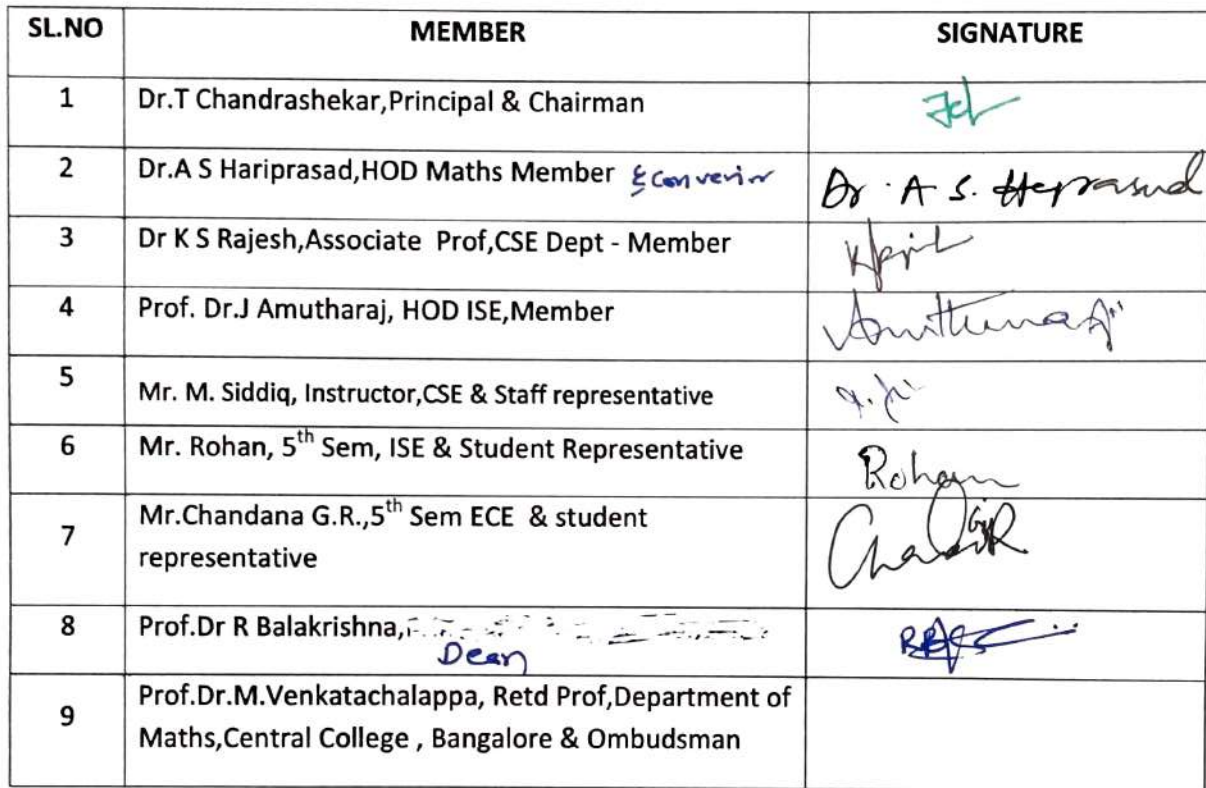 SL.NO MEMBER SIGNATURE
1 Dr.T Chandrashekar,Principal & Chairman
2 Dr.A S Hariprasad,HOD Maths Member & Convenir
Dr. A S. Heprasad
3 Dr K S Rajesh,Associate Prof,CSE Dept - Member
4 Prof. Dr.J Amutharaj, HOD ISE,Member
5 Mr. M. Siddiq, Instructor,CSE & Staff representative
6 Mr. Rohan, 5th Sem, ISE & Student Representative
Rohan
7 Mr.Chandana G.R.,5th Sem ECE & student
representative
8 Prof.Dr R Balakrishna,
Dean
9 Prof.Dr.M.Venkatachalappa, Retd Prof,Department of
Maths,Central College , Bangalore & Ombudsman